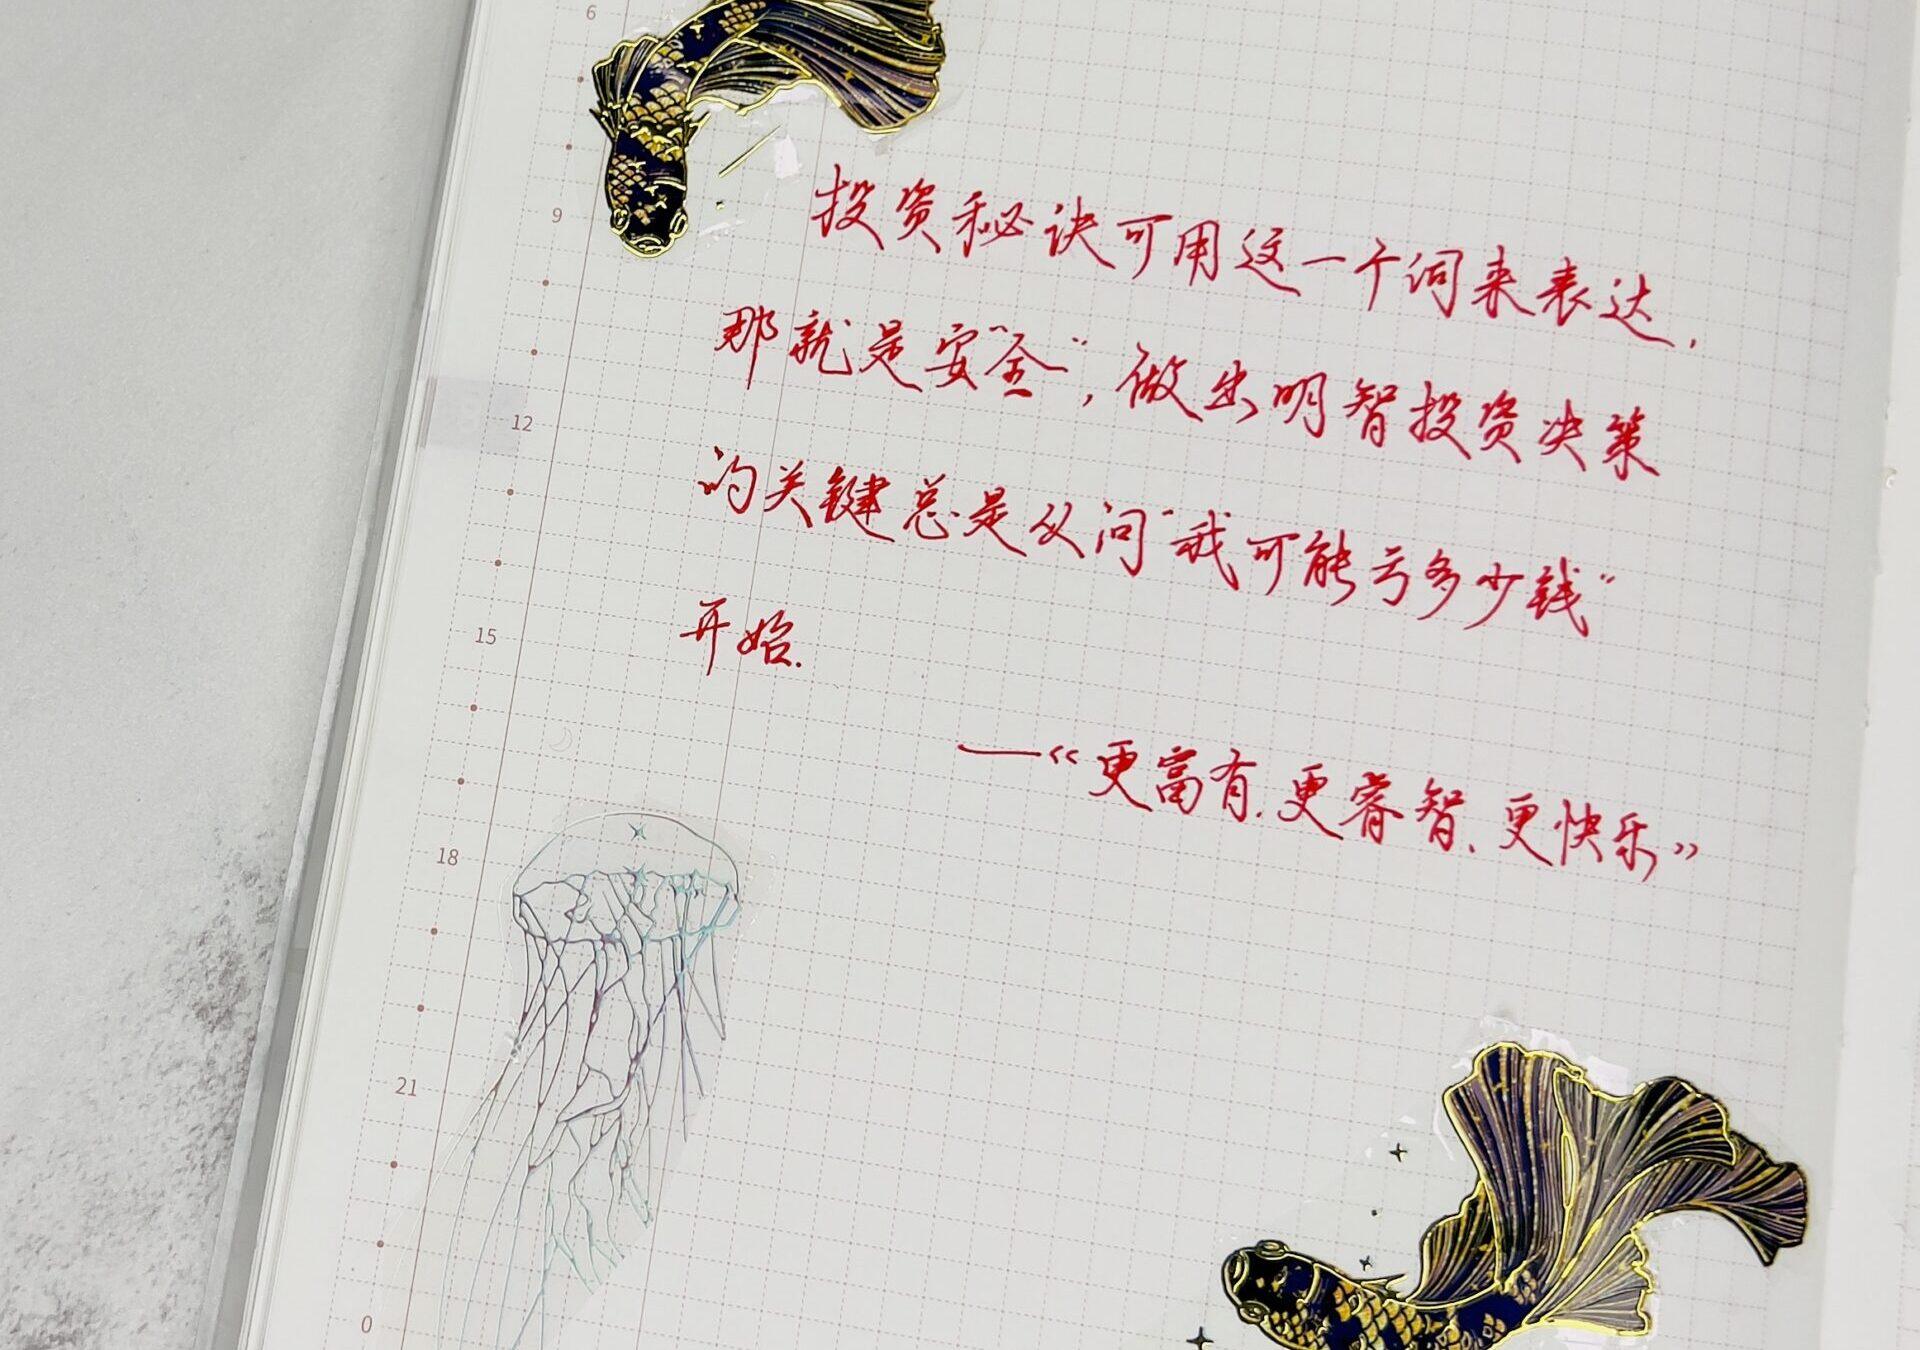 6
9
12
15
18
21
0
投资秘诀可用这一个词来表达,
那就是安“全”,做出明智投资决策
的关键总是从问“我可能亏多少钱”
开始.
—《更富有.更睿智.更快乐》